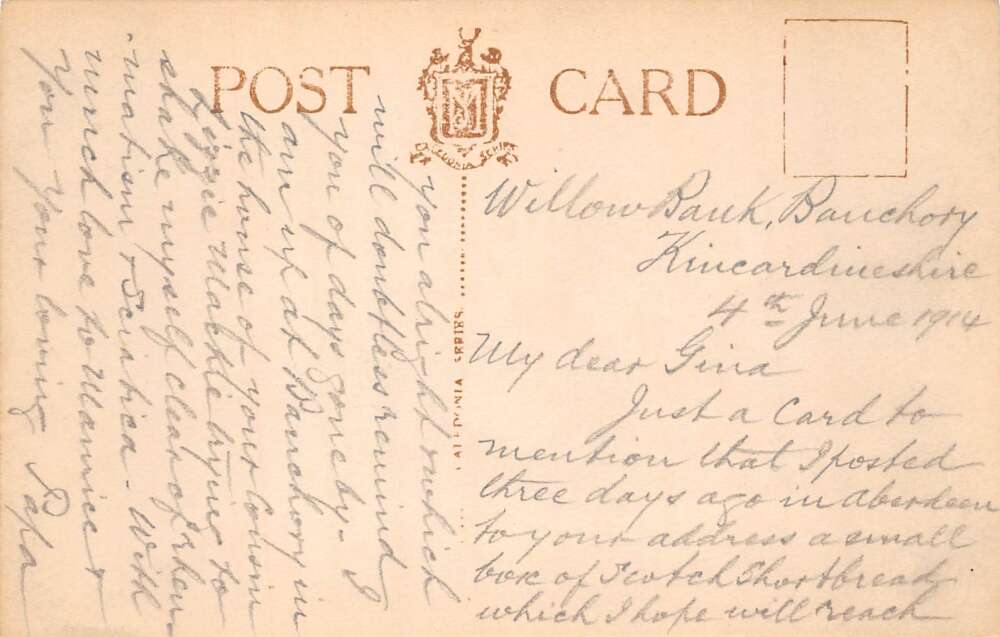 POST CARD
CALEDONIA SERIES
CALEDONIA SERIES
Willow Bank, Banchory
Kincardineshire
4th June 1914
My dear Gina
Just a Card to
mention that I posted
three days ago in Aberdeen
to your address a small
box of Scotch Shortbread
which I hope will reach
you alright which
will doubtless remind
you of days gone by - I
am up at Banchory in
the house of your Cousin
Lizzie Mackie trying to
shake myself clear of rheu-
matism & Sciatica - With
much love to Maurice &
you Your loving Papa